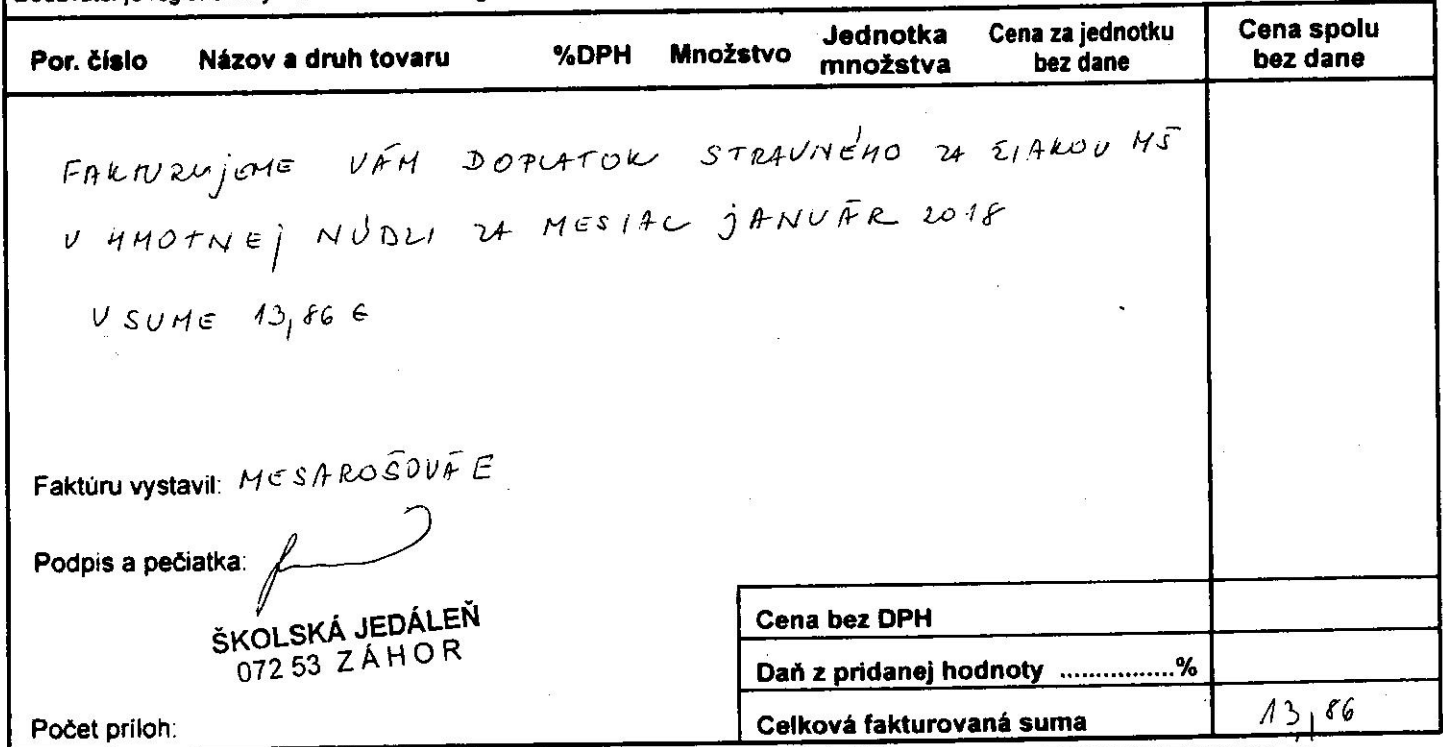 Por. číslo Názov a druh tovaru %DPH Množstvo Jednotka množstva Cena za jednotku bez dane Cena spolu bez dane
FAKTURUJEME VÁM DOPLATOK STRAVNÉHO ZA ŽIAKOV MŠ
V HMOTNEJ NÚDZI ZA MESIAC JANUÁR 2018
V SUME 13,86 €
Faktúru vystavil: MESAROŠOVÁ E
Podpis a pečiatka:
ŠKOLSKÁ JEDÁLEŇ
072 53 ZÁHOR
Cena bez DPH
Daň z pridanej hodnoty ................%
Počet príloh:
Celková fakturovaná suma 13,86